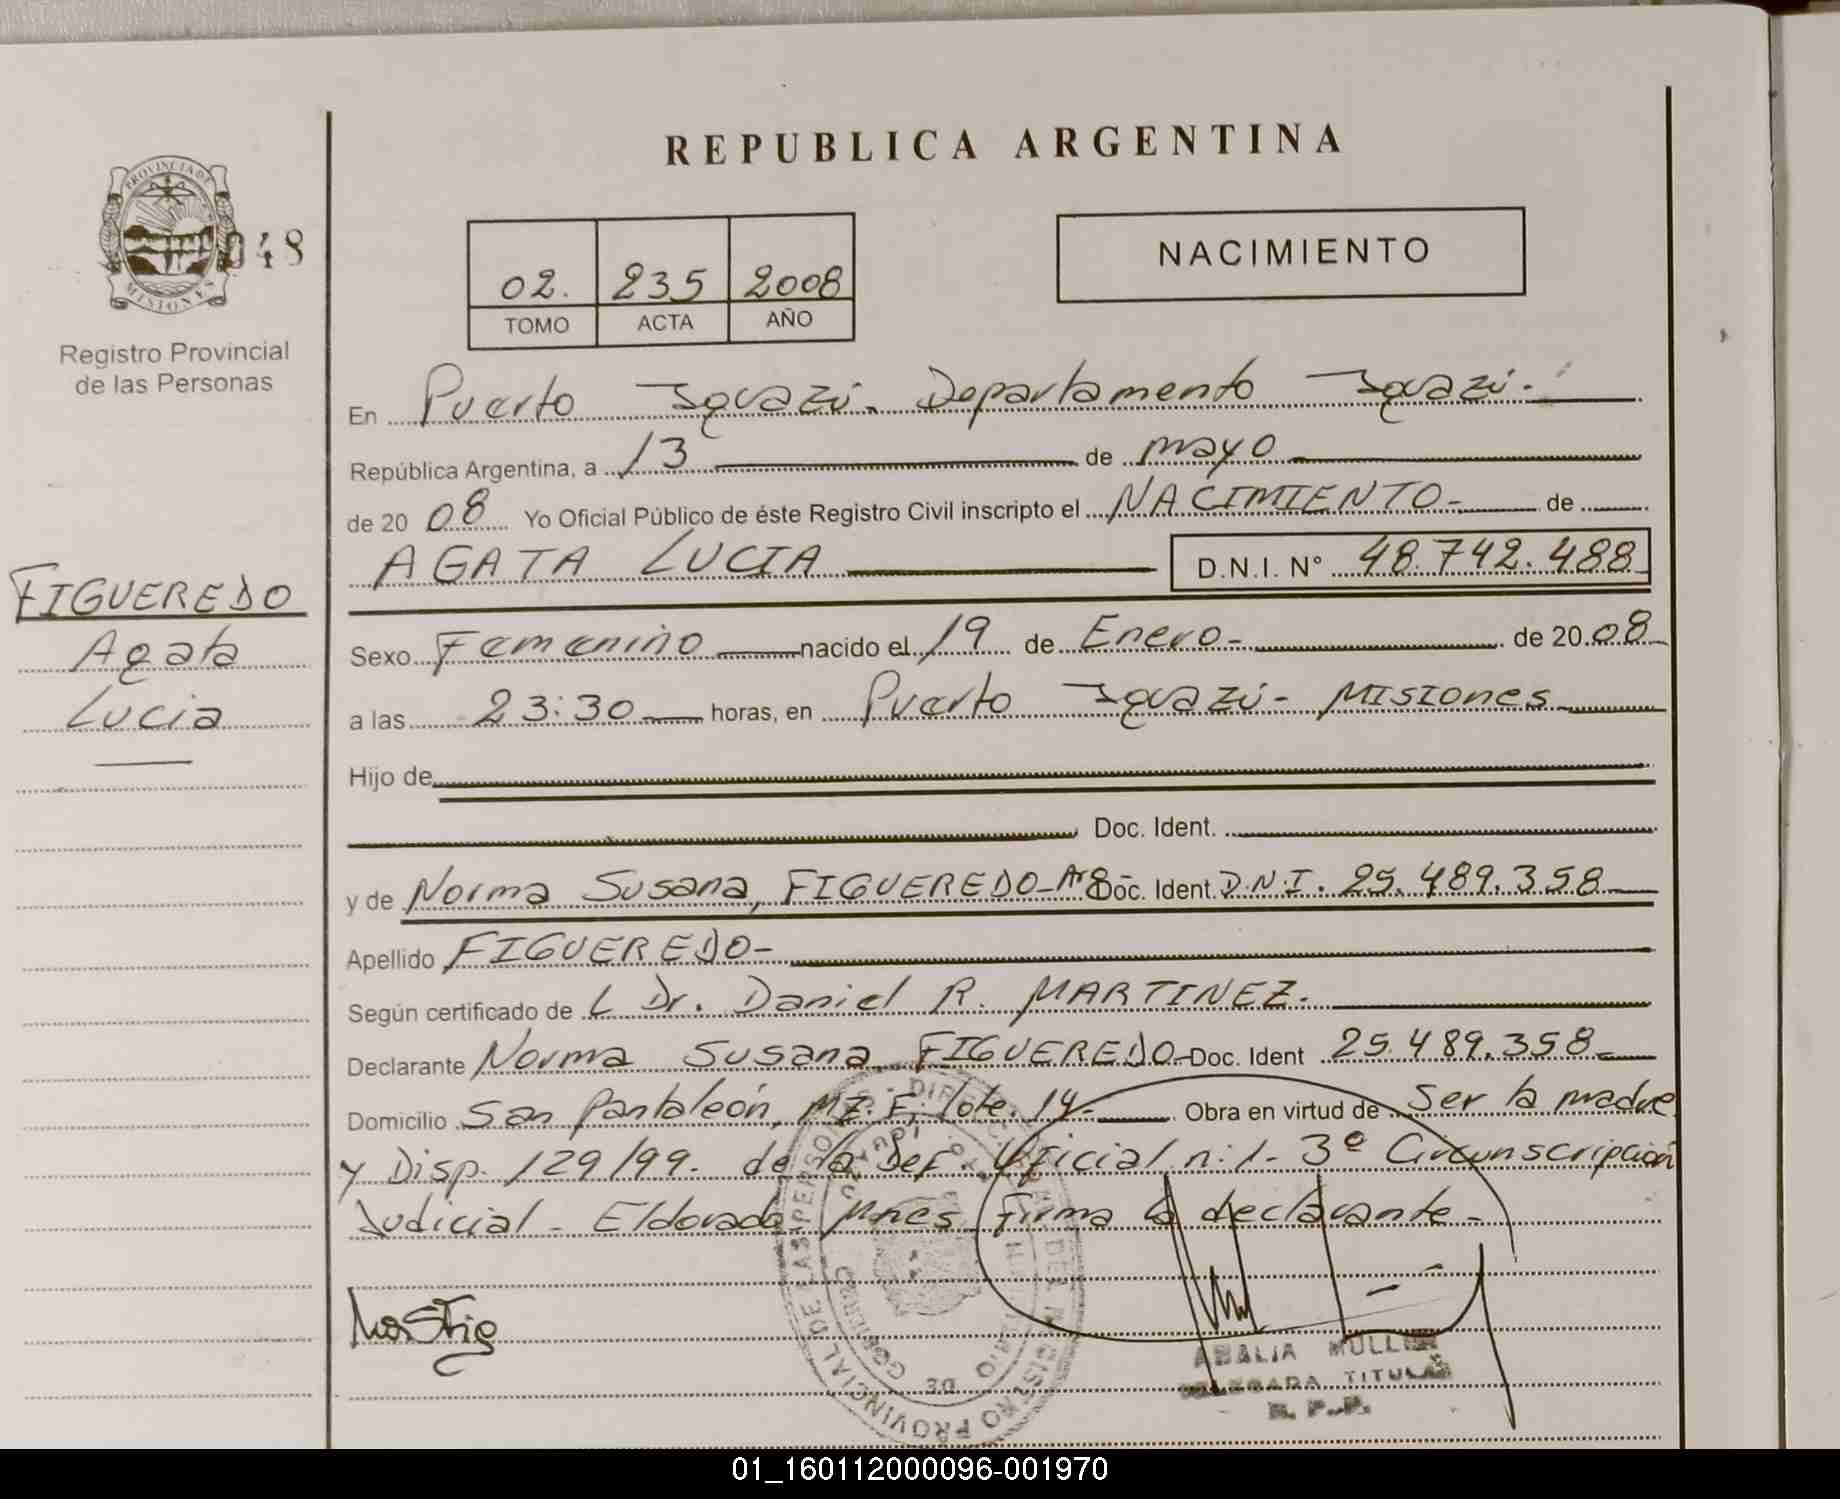 REPUBLICA ARGENTINA
PROVINCIA DE
MISIONES
048
Registro Provincial
de las Personas
02. 235 2008
TOMO ACTA AÑO
NACIMIENTO
En Puerto Iguazú. Departamento Iguazú.
República Argentina, a 13 de mayo
de 20 08 Yo Oficial Público de éste Registro Civil inscripto el NACIMIENTO- de
AGATA LUCIA D.N.I. N° 48.742.488
FIGUEREDO
Agata
Lucia
Sexo Femenino nacido el 19 de Enero- de 20 08
a las 23:30 horas, en Puerto Iguazú- MISIONES
Hijo de
Doc. Ident.
y de Norma Susana, FIGUEREDO-Arg Doc. Ident. D.N.I. 25.489.358
Apellido FIGUEREDO-
Según certificado de L Dr. Daniel R. MARTINEZ.
Declarante Norma Susana FIGUEREDO- Doc. Ident 25.489.358
Domicilio San Pantaleón, MZ. F. lote. 14- Obra en virtud de Ser la madre
y Disp. 129/99. de la Def. Oficial n: 1- 3ª Circunscripción
Judicial - Eldorado Mnes firma la declarante-
ANALIA MULLER
DELEGADA TITULAR
R. P. P.
01_160112000096-001970